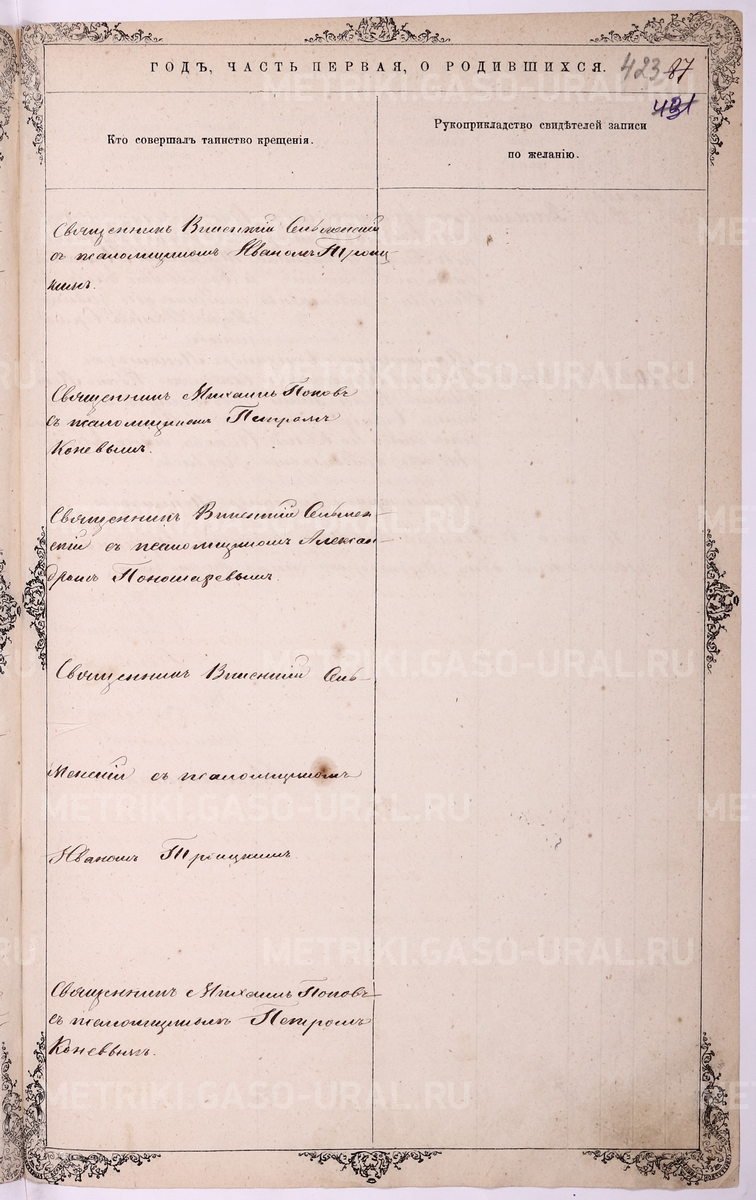 ГОДЪ, ЧАСТЬ ПЕРВАЯ, О РОДИВШИХСЯ. 423 87
431
Кто совершалъ таинство крещенія.
Рукоприкладство свидѣтелей записи
по желанію.
Священникъ Викентій
съ псаломщикомъ Иваномъ Троиц
кимъ.
Священникъ Михаилъ Поповъ
съ псаломщикомъ Петромъ
Коневымъ.
Священникъ Викентій
съ псаломщикомъ Алексан-
дромъ Пономаревымъ.
Священникъ Викентій
съ псаломщикомъ
Иваномъ Троицкимъ.
Священникъ Михаилъ Поповъ
съ псаломщикомъ Петромъ
Коневымъ.
METRIKI.GASO-URAL.RU